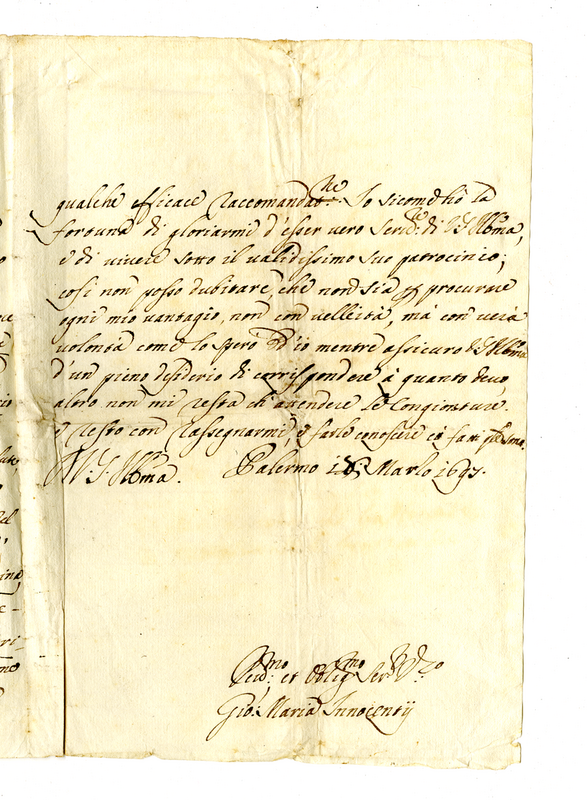 qualche efficace raccomandat.ne Io sicome hò la
fortuna di gloriarmi d'esser vero Serv.e di V.S. Ill.ma,
e di vivere sotto il validissimo suo patrocinio;
così non posso dubitare, che non sia p procurare
ogni mio vantagio, non con velleità, mà con vera
volontà come lo spero ed io mentre assicuro V.S. Ill.ma
d'un pieno desiderio di corrispondere à quanto devo,
altro non mi resta ch'attendere le Congionture.
e resto con rassegnarmi, e farle conoscere co' fatti
D. V. S. Ill.ma. Palermo 18: Marzo 1697.
Dev.mo et Oblig.mo Ser.re V.ro
Gio: Maria Innocentij
ue
io
el
ina
e-
ri-
mo